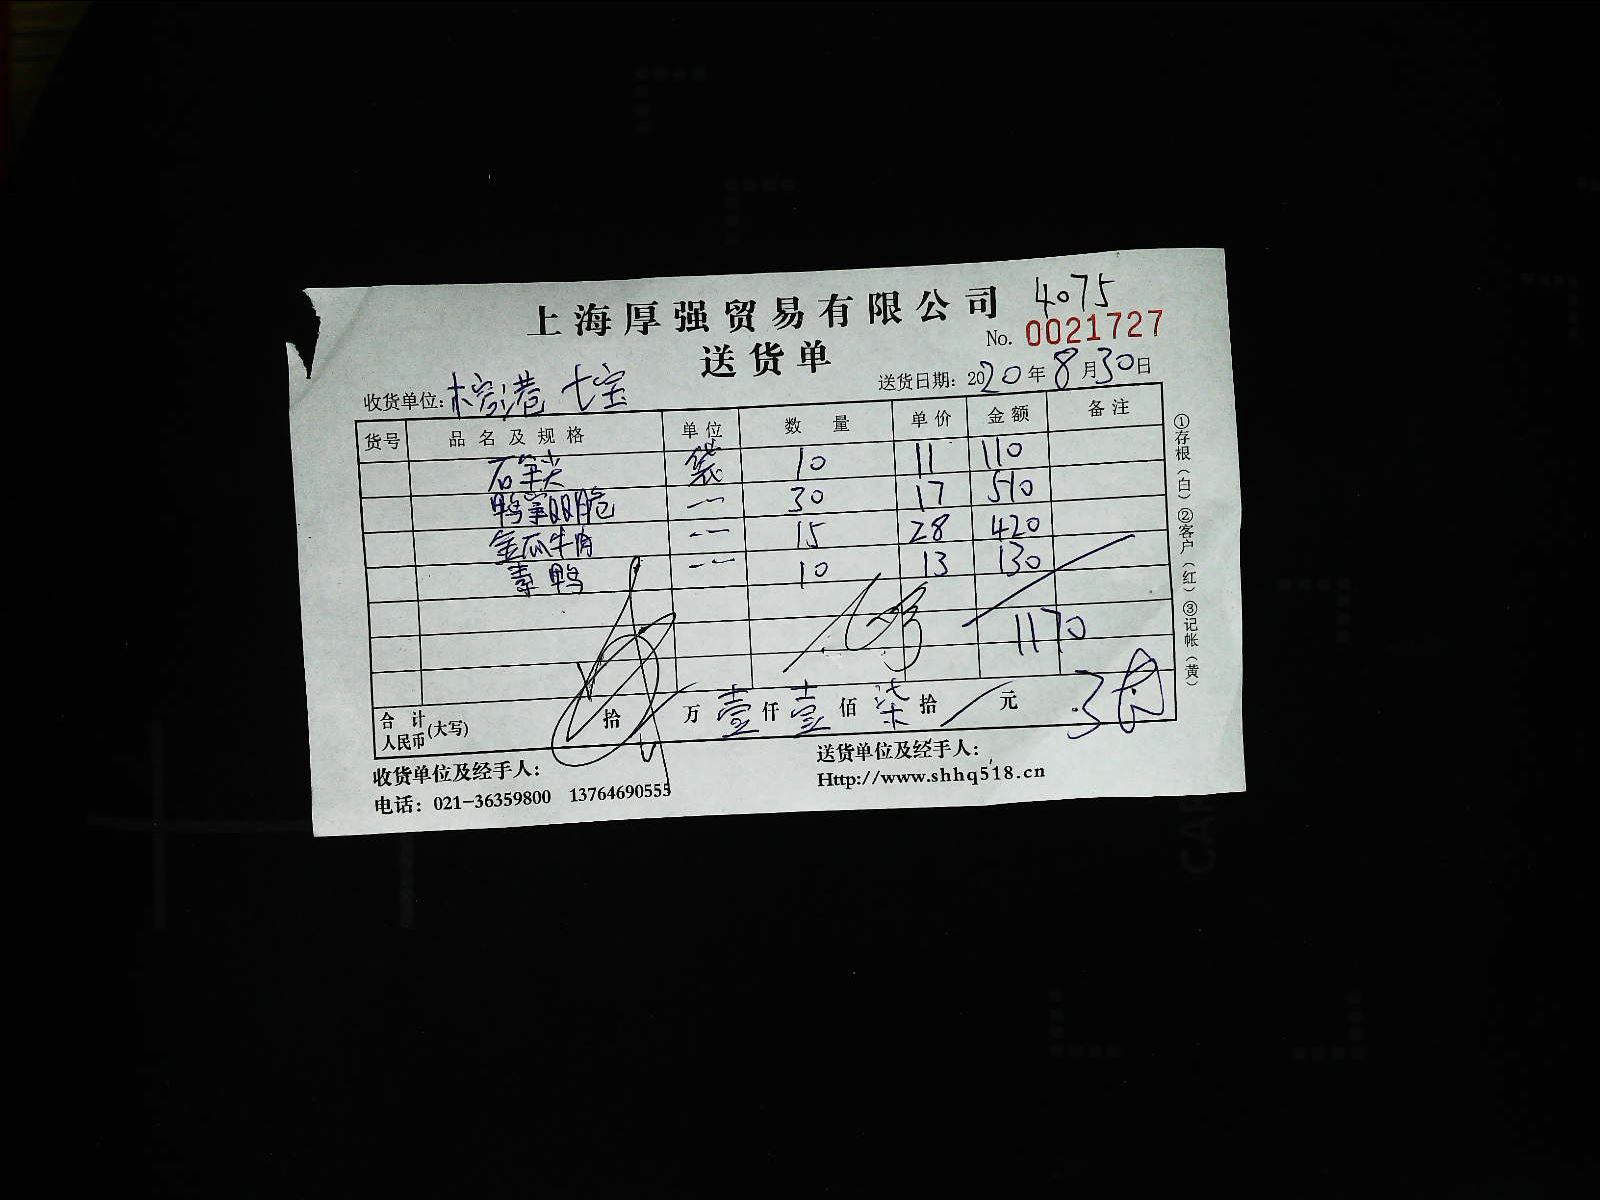 上海厚强贸易有限公司 4075
No. 0021727
送货单
收货单位: 榕港 七宝 送货日期: 2020年8月30日
货号 品名及规格 单位 数量 单价 金额 备注
石笋尖 袋 10 11 110
鸭掌 脆 -- 30 17 510
金瓜牛肉 -- 15 28 420
素鸭 -- 10 13 130
1170
合计人民币(大写) 拾 万 壹仟 壹佰 柒拾 元
收货单位及经手人: 送货单位及经手人:
电话: 021-36359800 13764690555 Http://www.shhq518.cn
①存根(白)②客户(红)③记帐(黄)